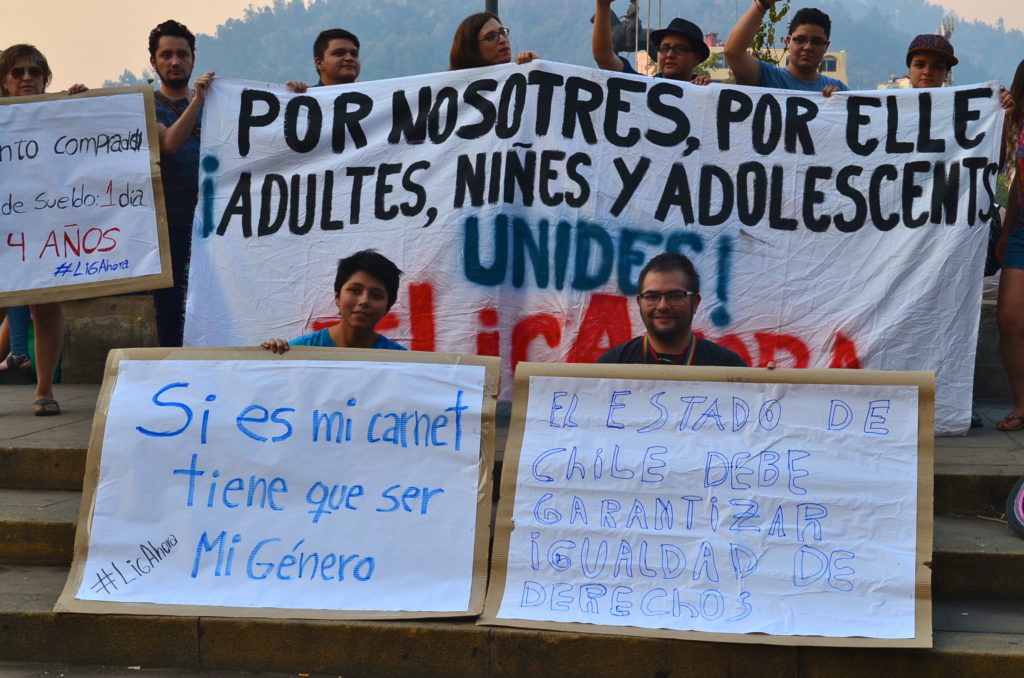 POR NOSOTRES, POR ELLE
¡ADULTES, NIÑES Y ADOLESCENTS
UNIDES!
#LicAhORA
nto comprado
de sueldo: 1 dia
4 AÑOS
#LiGAhora
Si es mi carnet
tiene que ser
Mi Género
#LiGAhora
EL ESTADO DE
ChiLE DEBE
GARANTIZAR
iGUALDAD DE
DERECHOS